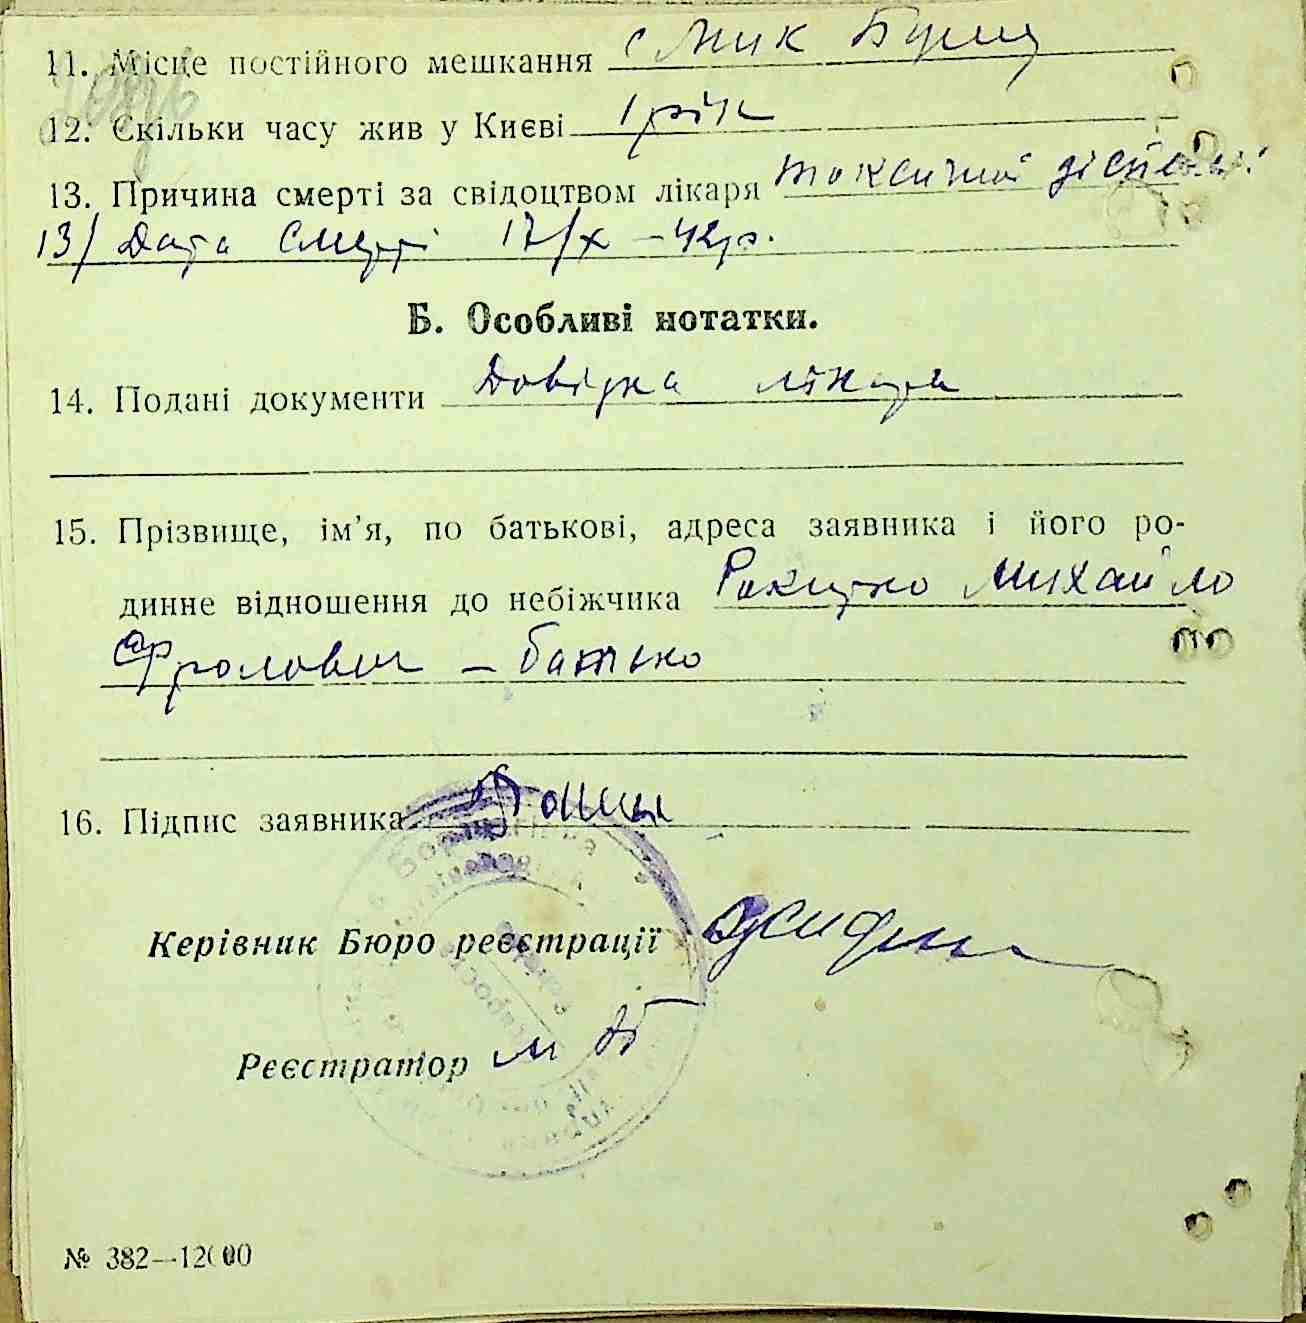 11. Місце постійного мешкання с Мик Бурщ
12. Скільки часу жив у Києві 1 рік
13. Причина смерті за свідоцтвом лікаря токсичної діспепсії
13/ Дата смерті 17/X -42р.
Б. Особливі нотатки.
14. Подані документи Довідка лікаря
15. Прізвище, ім’я, по батькові, адреса заявника і його ро-
динне відношення до небіжчика Ракитко Михайло
Фролович - батько
16. Підпис заявника
Керівник Бюро реєстрації
Реєстратор
№ 382—12000